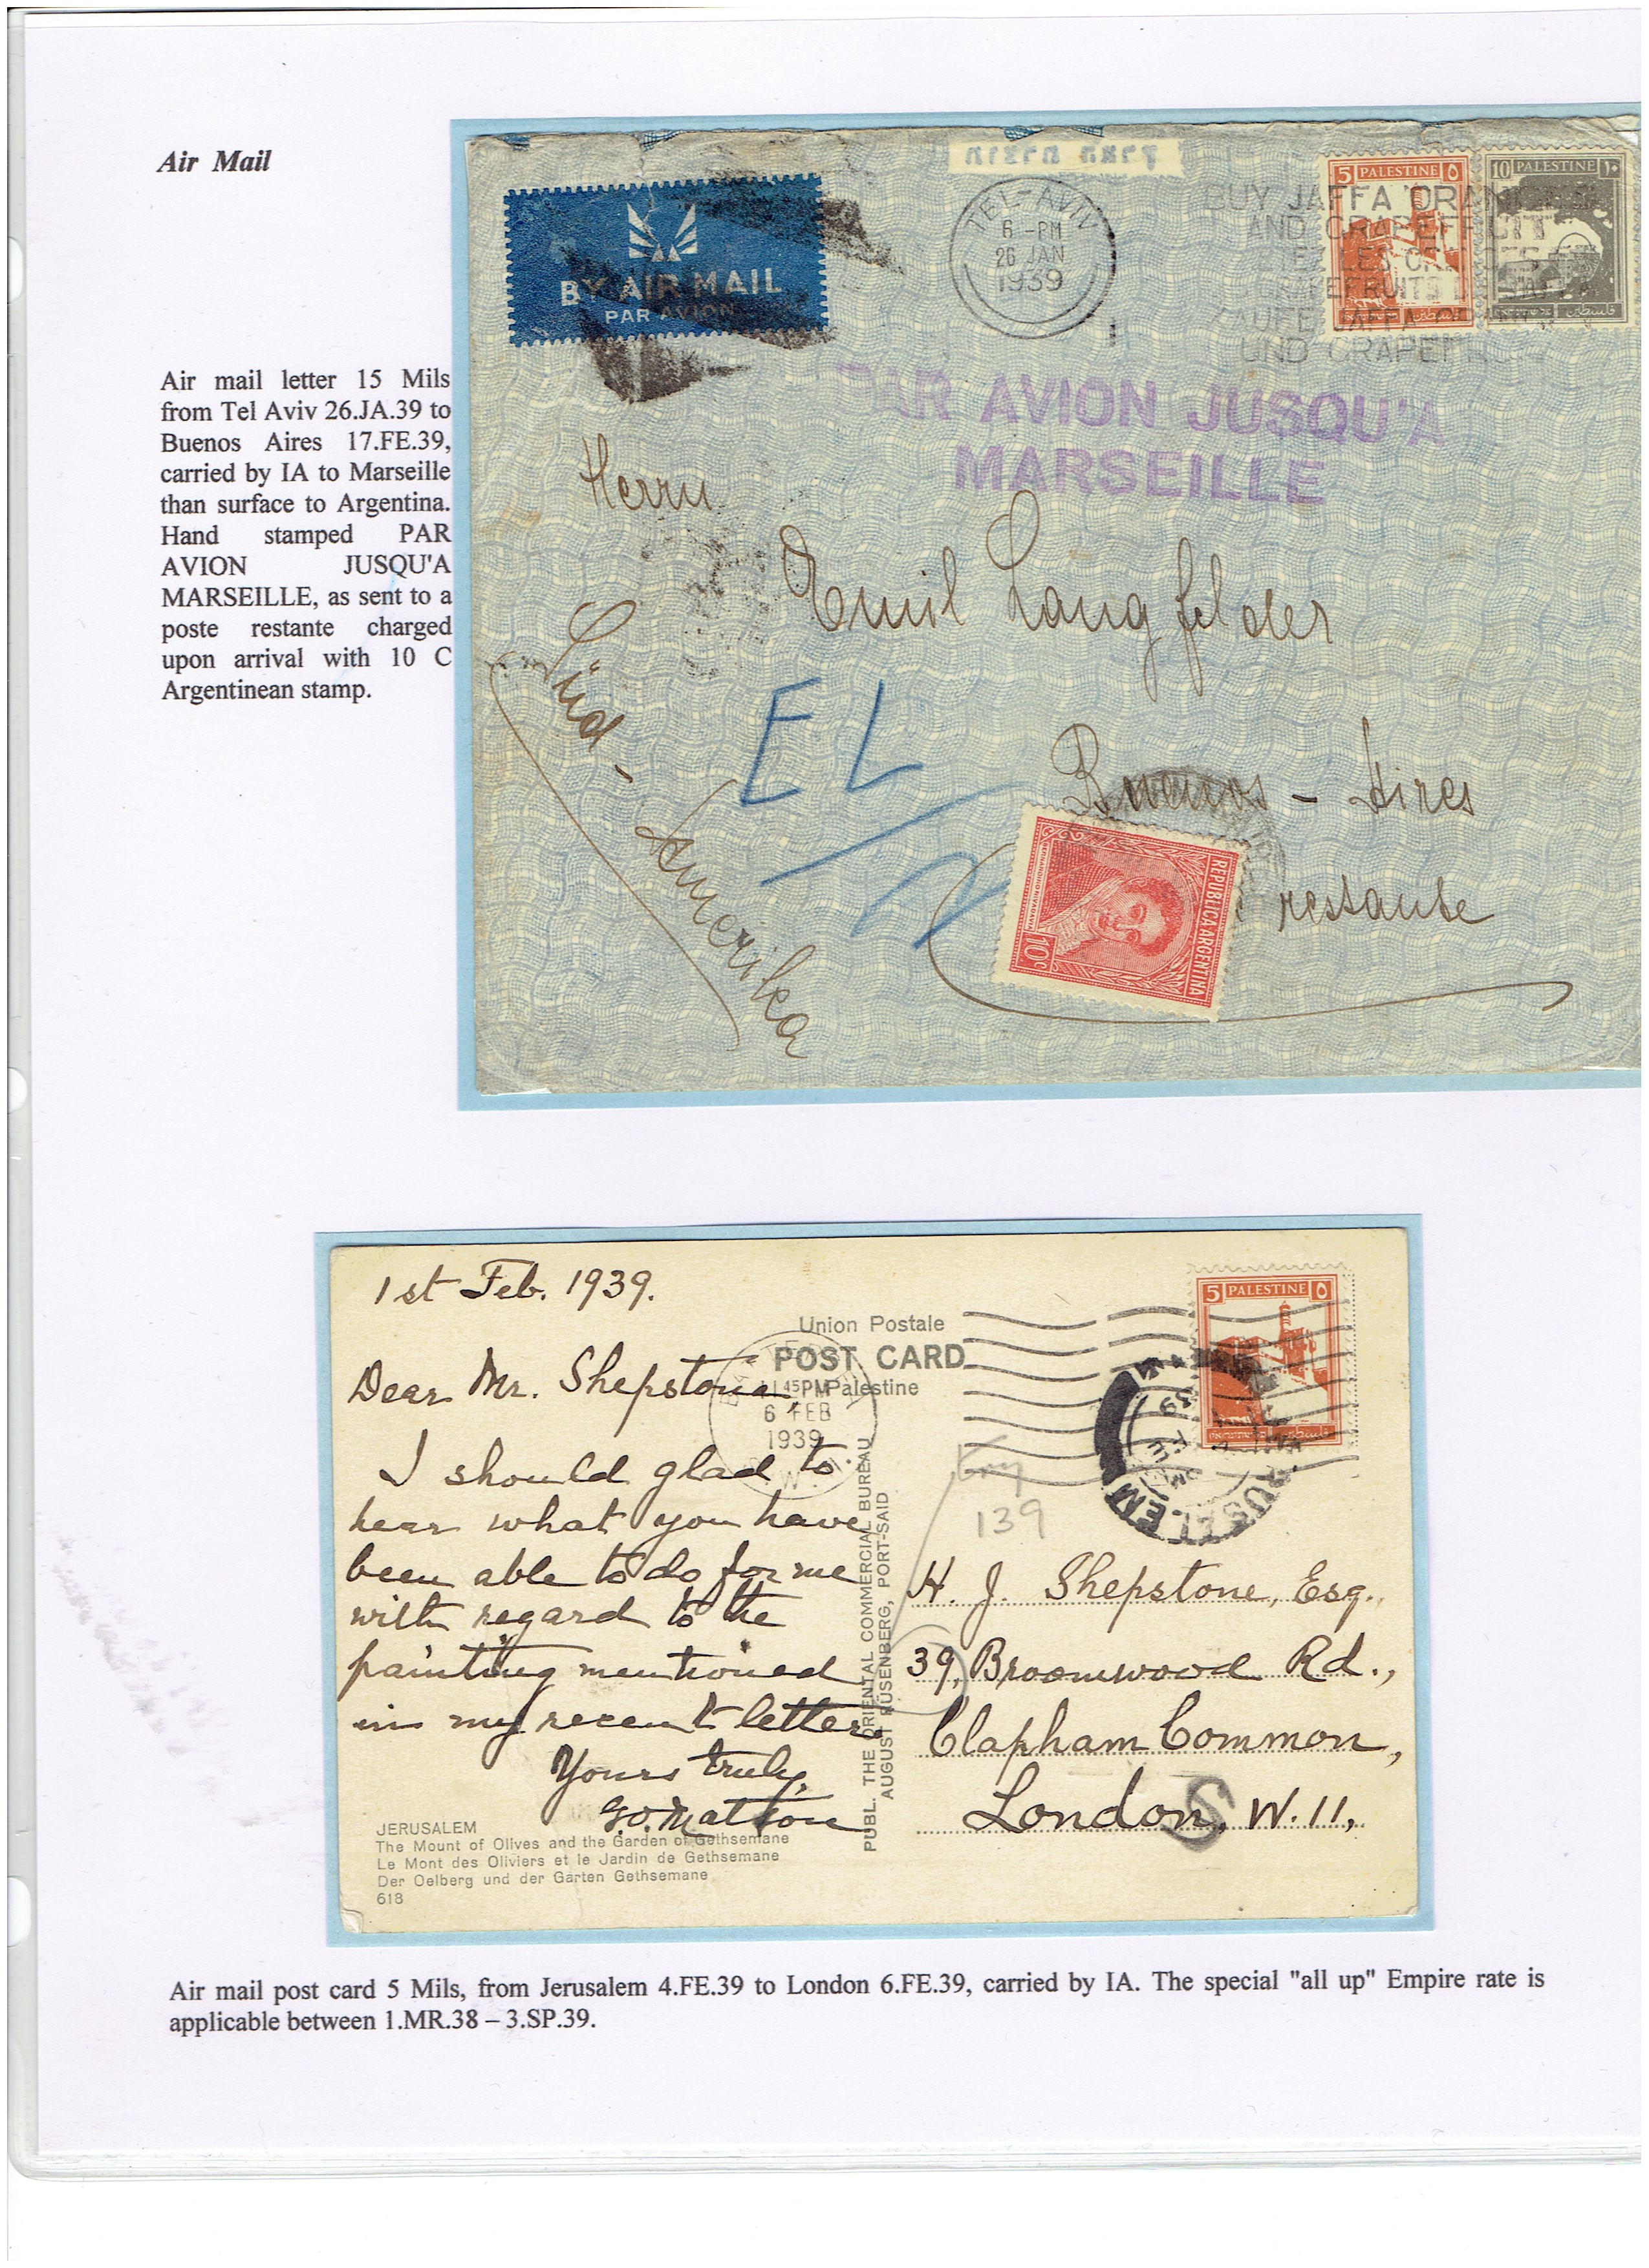 Air Mail
Air mail letter 15 Mils
from Tel Aviv 26.JA.39 to
Buenos Aires 17.FE.39,
carried by IA to Marseille
than surface to Argentina.
Hand stamped PAR
AVION JUSQU'A
MARSEILLE, as sent to a
poste restante charged
upon arrival with 10 C
Argentinean stamp.
BY AIR MAIL
PAR AVION
TEL AVIV
6 -PM
26 JAN
1939
5 PALESTINE ٥
10 PALESTINE ١٠
BUY JAFFA ORANGES
AND GRAPEFRUIT
UND GRAPEFR
PAR AVION JUSQU'A
MARSEILLE
Herrn
Emil Langfelder
Buenos - Aires
restante
Süd-
Amerika
EL
REPUBLICA ARGENTINA
10c
1st Feb. 1939.
Union Postale
POST CARD
Palestine
Dear Mr. Shepstone,
I should glad to
hear what you have
been able to do for me
with regard to the
painting mentioned
in my recent letter.
Yours truly,
G.O. Matson
11.45PM
6 FEB
1939
5 PALESTINE ٥
139
H. J. Shepstone, Esq.,
39, Broomwood Rd.,
Clapham Common,
London, W.11,
S
PUBL. THE ORIENTAL COMMERCIAL BUREAU
AUGUST RÜSENBERG, PORT-SAID
JERUSALEM
The Mount of Olives and the Garden of Gethsemane
Le Mont des Oliviers et le Jardin de Gethsemane
Der Oelberg und der Garten Gethsemane
618
Air mail post card 5 Mils, from Jerusalem 4.FE.39 to London 6.FE.39, carried by IA. The special "all up" Empire rate is
applicable between 1.MR.38 – 3.SP.39.